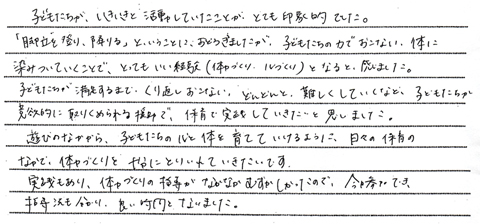 子どもたちが、いきいきと活動していたことが、とても印象的でした。
「脚立を登り、降りる」ということに、おどろきましたが、子どもたちの力でおこない、体に
染みついていくことで、とってもいい経験(体づくり、心づくり)となると、感じました。
子どもたちが満足するまで、くり返しおこない、どんどんと、難しくしていくなど、子どもたちが
意欲的に取りくめられる援助で、保育で実践していきたいと思しました。
遊びのなかから、子どもたちの心と体を育てていけるように、日々の保育の
なかで、体づくりをとりいれていきたいです。
実践もあり、体づくりの指導がなかなかむずかしかったので、今日参考でき、
指導法も分かり、良い時間となりました。